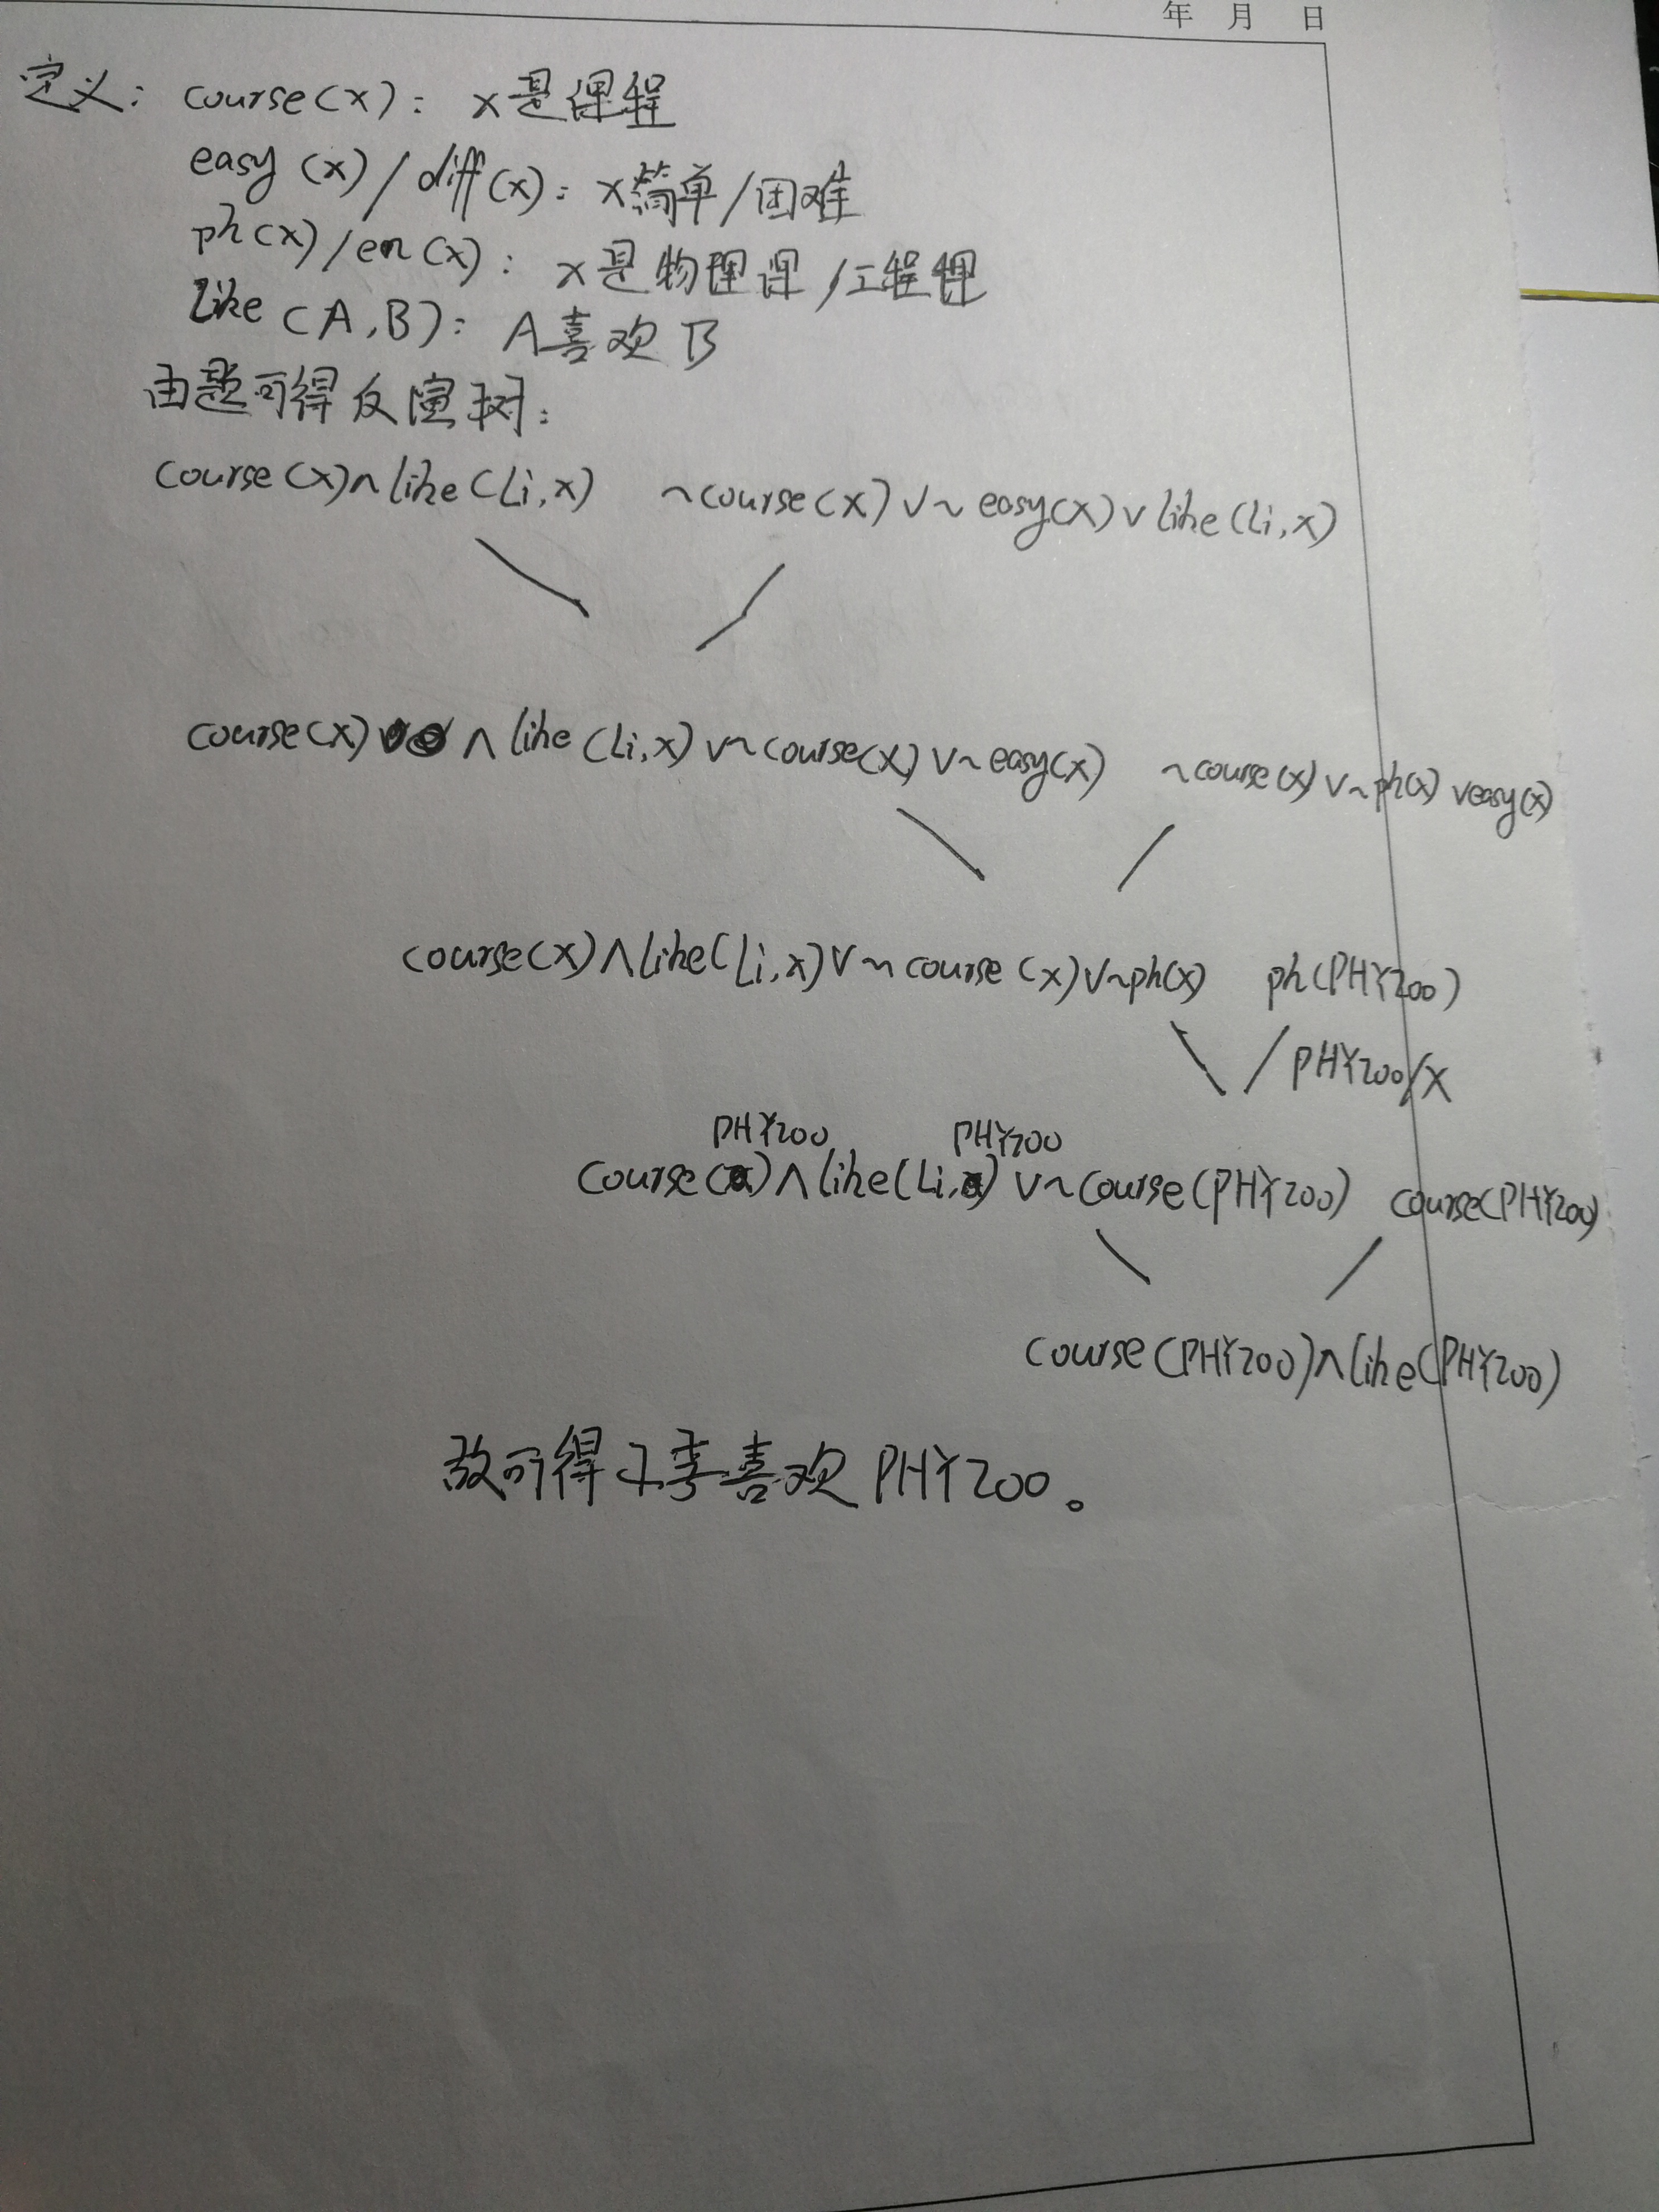 年 月 日
定义: course(x): x是课程
easy(x)/diff(x): x简单/困难
ph(x)/en(x): x是物理课/工程课
like(A,B): A喜欢B
由题可得反演树:
course(x)∧like(Li,x) ~course(x)∨~easy(x)∨like(Li,x)
course(x)∧like(Li,x)∨~course(x)∨~easy(x) ~course(x)∨~ph(x)∨easy(x)
course(x)∧like(Li,x)∨~course(x)∨~ph(x) ph(PHY200)
PHY200/x
PHY200 PHY200
course( )∧like(Li, )∨~course(PHY200) course(PHY200)
course(PHY200)∧like(PHY200)
故可得小李喜欢PHY200。